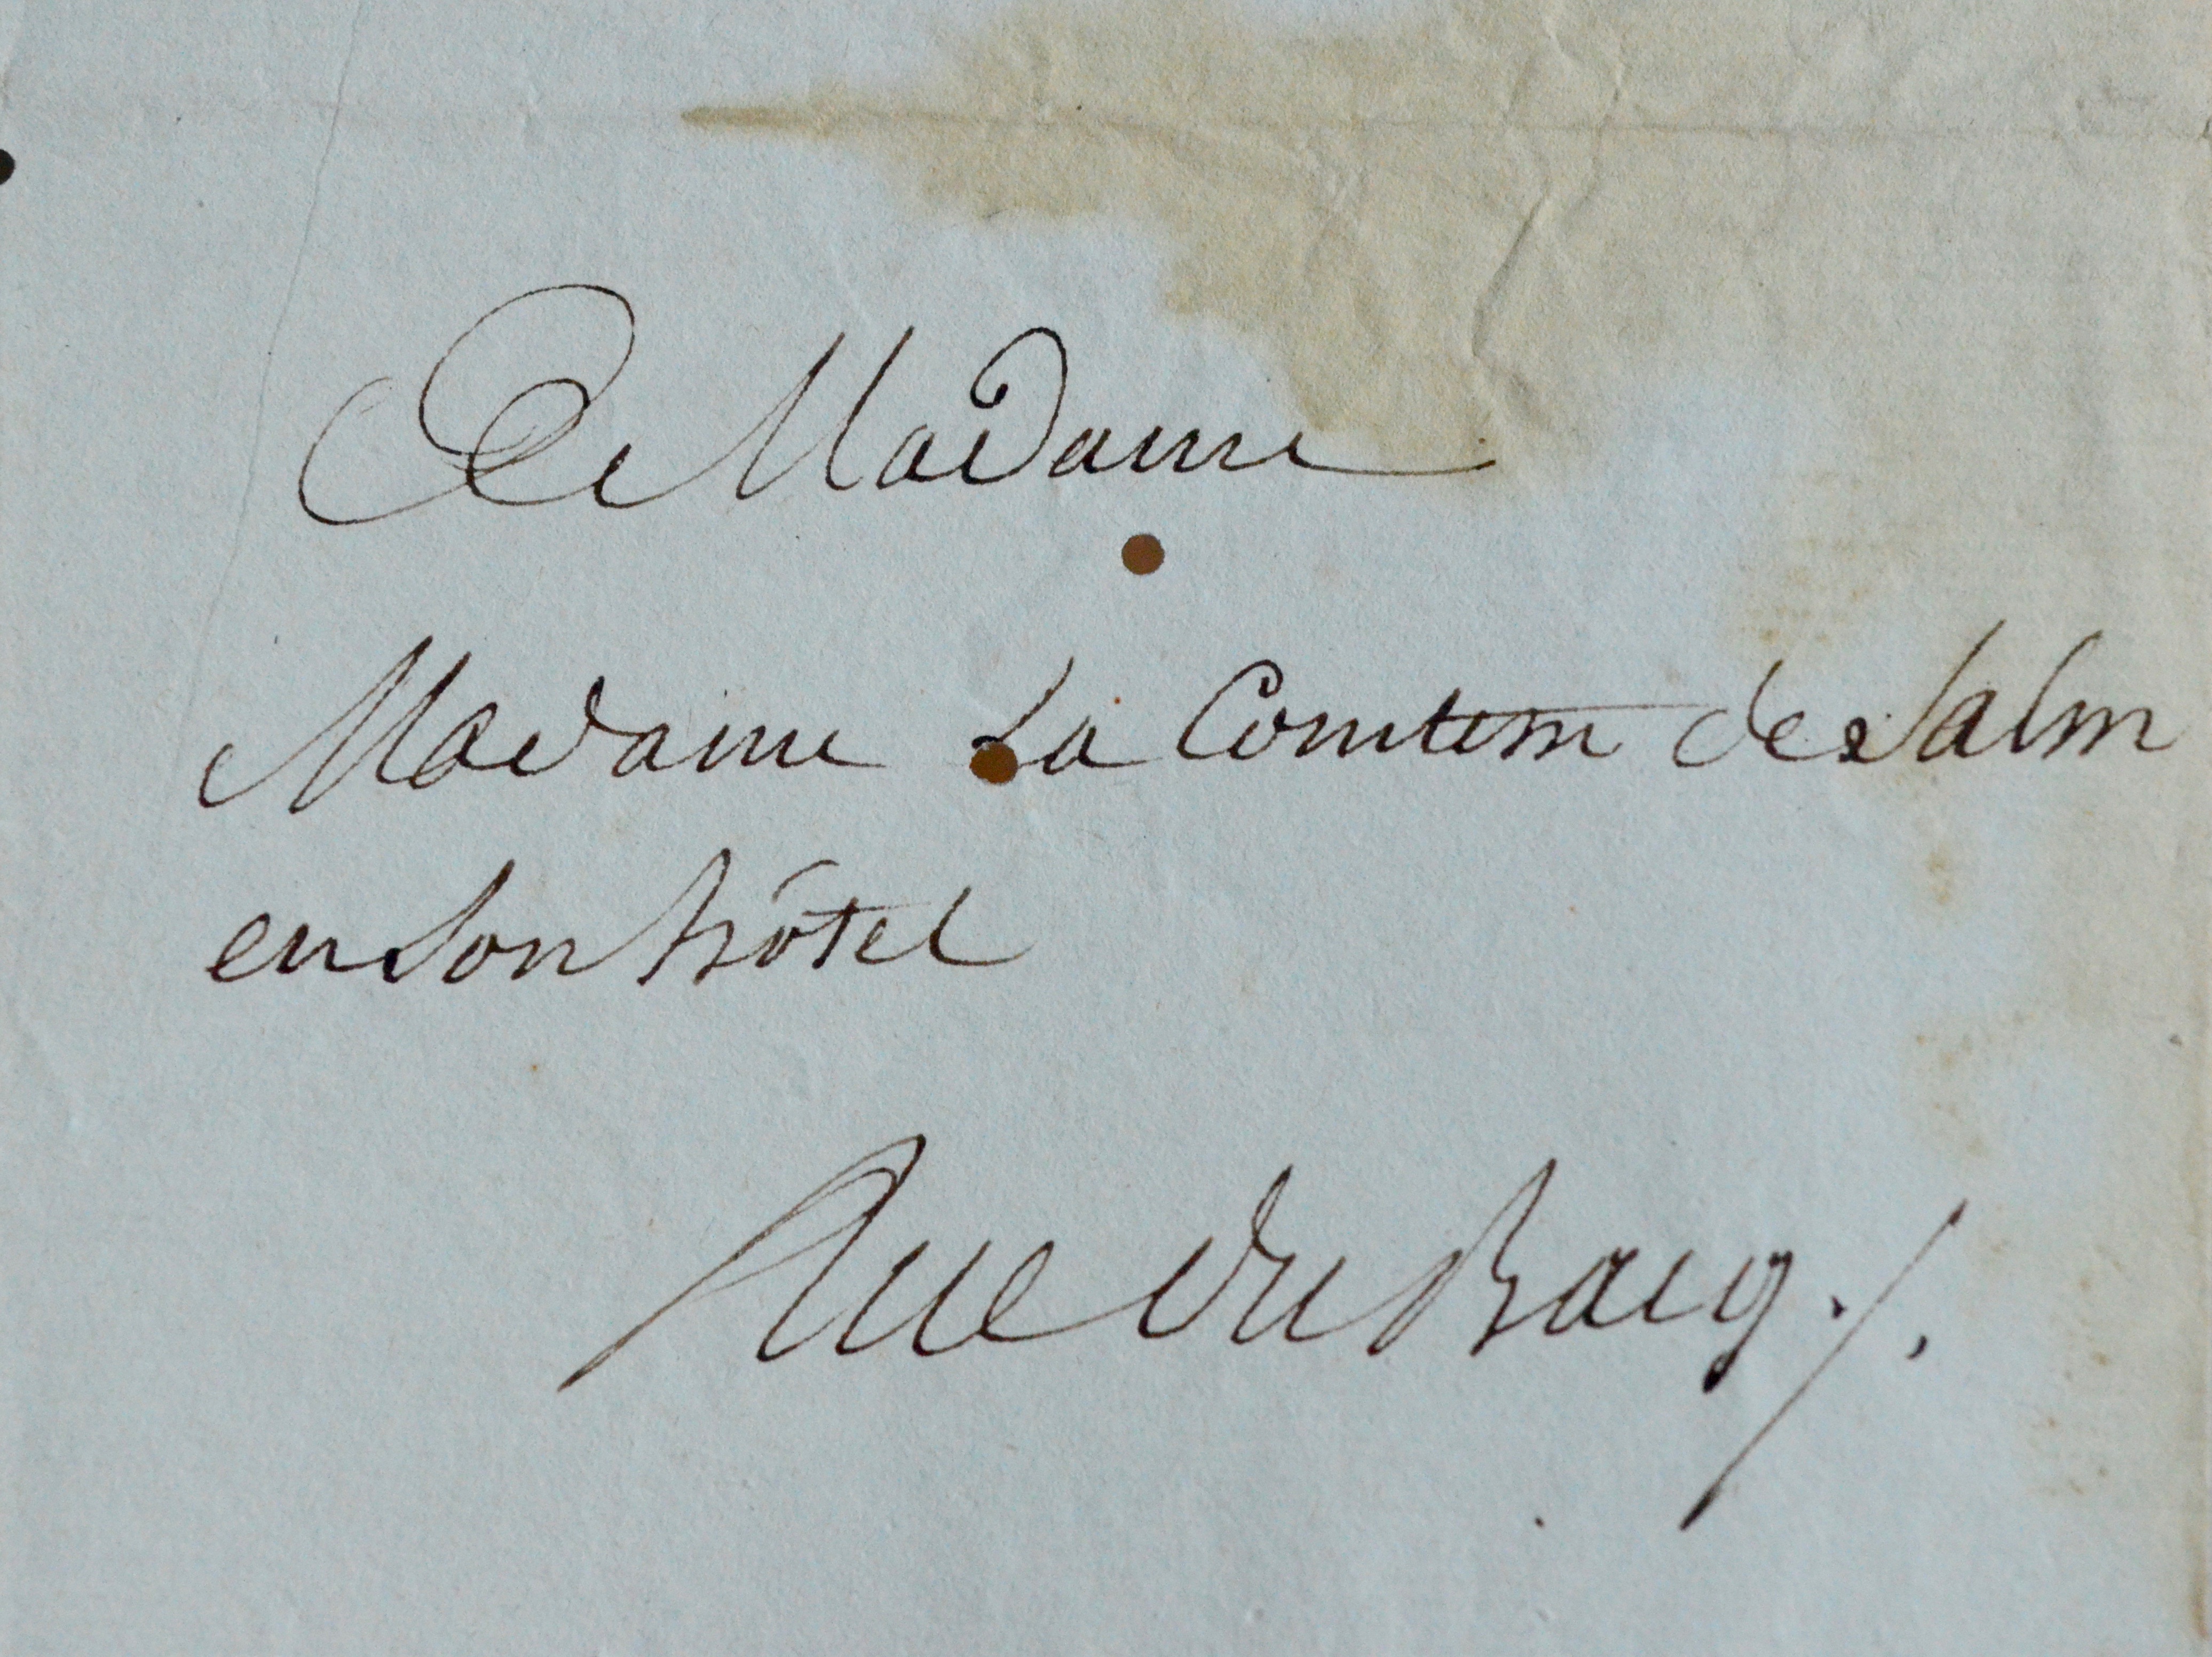 A Madame
Madame La Comtesse de Salm
en son hôtel
Rue du Bacq./.